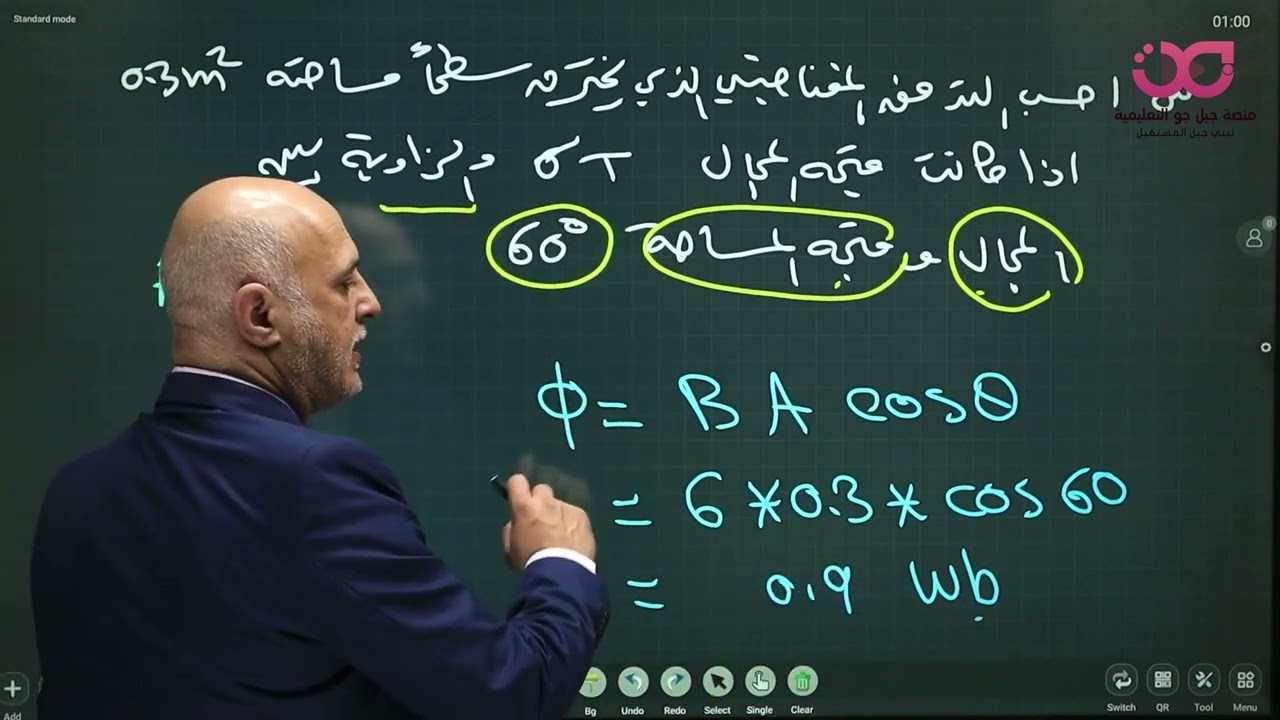 Standard mode
01:00
منصة جيل جو التعليمية
نبني جيل المستقبل
س احسب التدفق المغناطيسي الذي يخترق سطحاً مساحته 0.3m²
اذا كانت متجه المجال 6T والزاوية بين
المجال و متجه المساحة 60°
Φ = B A cosθ
= 6 * 0.3 * cos 60
= 0.9 Wb
Add
Bg
Undo
Redo
Select
Single
Clear
Switch
QR
Tool
Menu
0